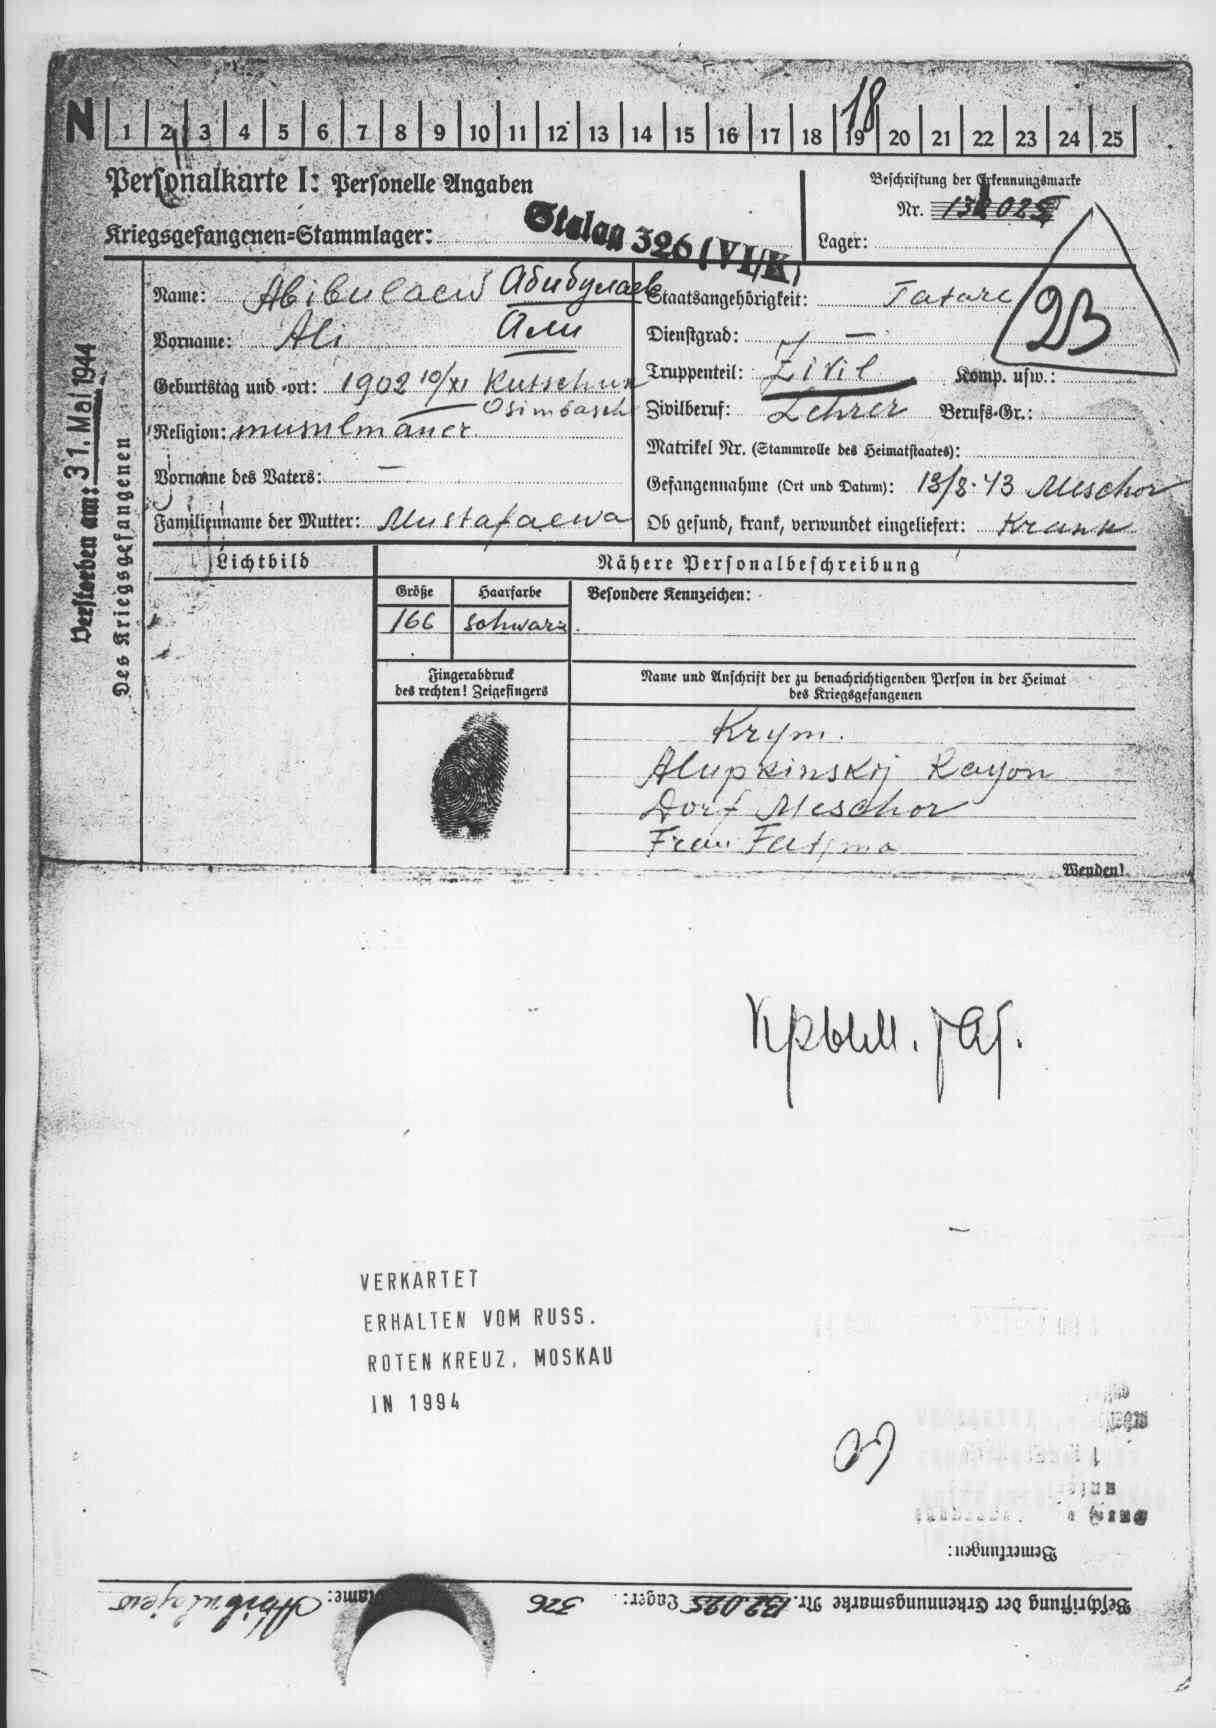 N 1 2 3 4 5 6 7 8 9 10 11 12 13 14 15 16 17 18 19 20 21 22 23 24 25
18
Personalkarte I: Personelle Angaben
Beschriftung der Erkennungsmarke
Nr. 132025
Kriegsgefangenen-Stammlager: Stalag 326 (VI/K)
Lager:
2B
Verstorben am: 31. Mai 1944
Des Kriegsgefangenen
Name: Abibulaew Абибулаев
Vorname: Ali Али
Geburtstag und -ort: 1902 10/XI Kutschuk
Osimbasch
Religion: muselmaner
Vorname des Vaters: —
Familienname der Mutter: Mustafaewa
Staatsangehörigkeit: Tatare
Dienstgrad: —
Truppenteil: Zivil Komp. usw.:
Zivilberuf: Lehrer Berufs-Gr.:
Matrikel Nr. (Stammrolle des Heimatstaates):
Gefangennahme (Ort und Datum): 13/8.43 Meschor
Ob gesund, krank, verwundet eingeliefert: Krank
Lichtbild
Nähere Personalbeschreibung
Größe Haarfarbe Besondere Kennzeichen:
166 schwarz
Fingerabdruck
des rechten! Zeigefingers
Name und Anschrift der zu benachrichtigenden Person in der Heimat
des Kriegsgefangenen
Krym.
Alupkinskij Rayon
Dorf Meschor
Frau Fatjma
Wenden!
VERKARTET
ERHALTEN VOM RUSS.
ROTEN KREUZ, MOSKAU
IN 1994
Bemerkungen:
Beschriftung der Erkennungsmarke Nr. 132025 Lager: 326 Name: Abibulajew